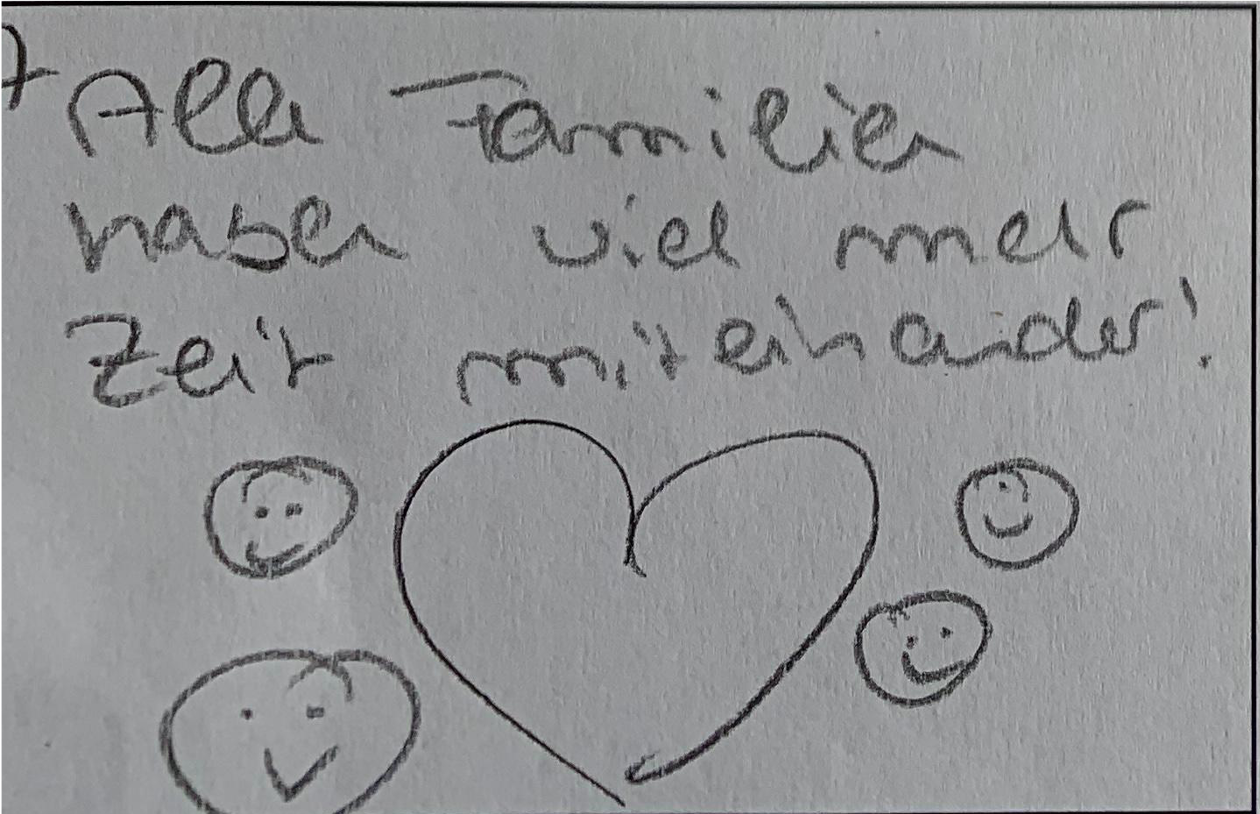 Alle Familien
haben viel mehr
Zeit miteinander!